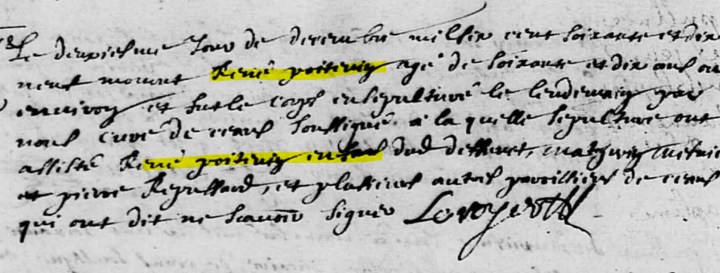 Le deuxiesme Jour de decembre mil six cent soixante et dix
neuf mourut René poitevin agé de soixante et dix ans ou
environ et fut le corps ensepulturé le lendemain par
nous curé de ceans soussigné a la quelle sepulture ont
assisté René poitevin enfant dud deffunct, mathurin
et pierre Repussard, et plusieurs autres parroissiens de ceans
qui ont dit ne scavoir signer Leroyer